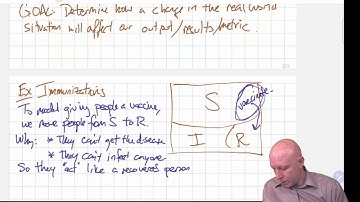 GOAL: Determine how a change in the real world
situation will affect our output/results/metric.
Ex Immunizations
To model giving people a vaccine,
we move people from S to R.
Why: * They can't get the disease
* They can't infect anyone.
So they "act" like a recovered person
S
vaccinate
I
R